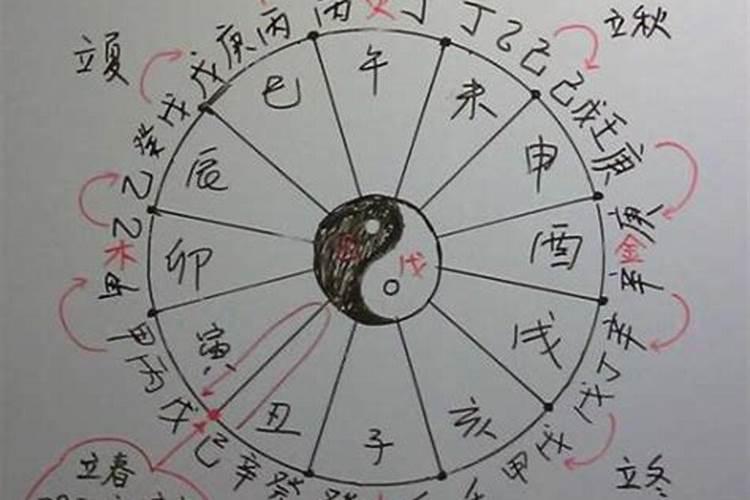 立夏
立秋
立冬
立春
巳
午
未
申
酉
戌
亥
子
丑
寅
卯
辰
戊
木
金
甲
甲
丙
戊
己
辛
癸
乙
乙
癸
戊
戊
庚
丙
丙
丁
丁
乙
己
己
戊
壬
庚
庚
辛
辛
丁
戊
戊
甲